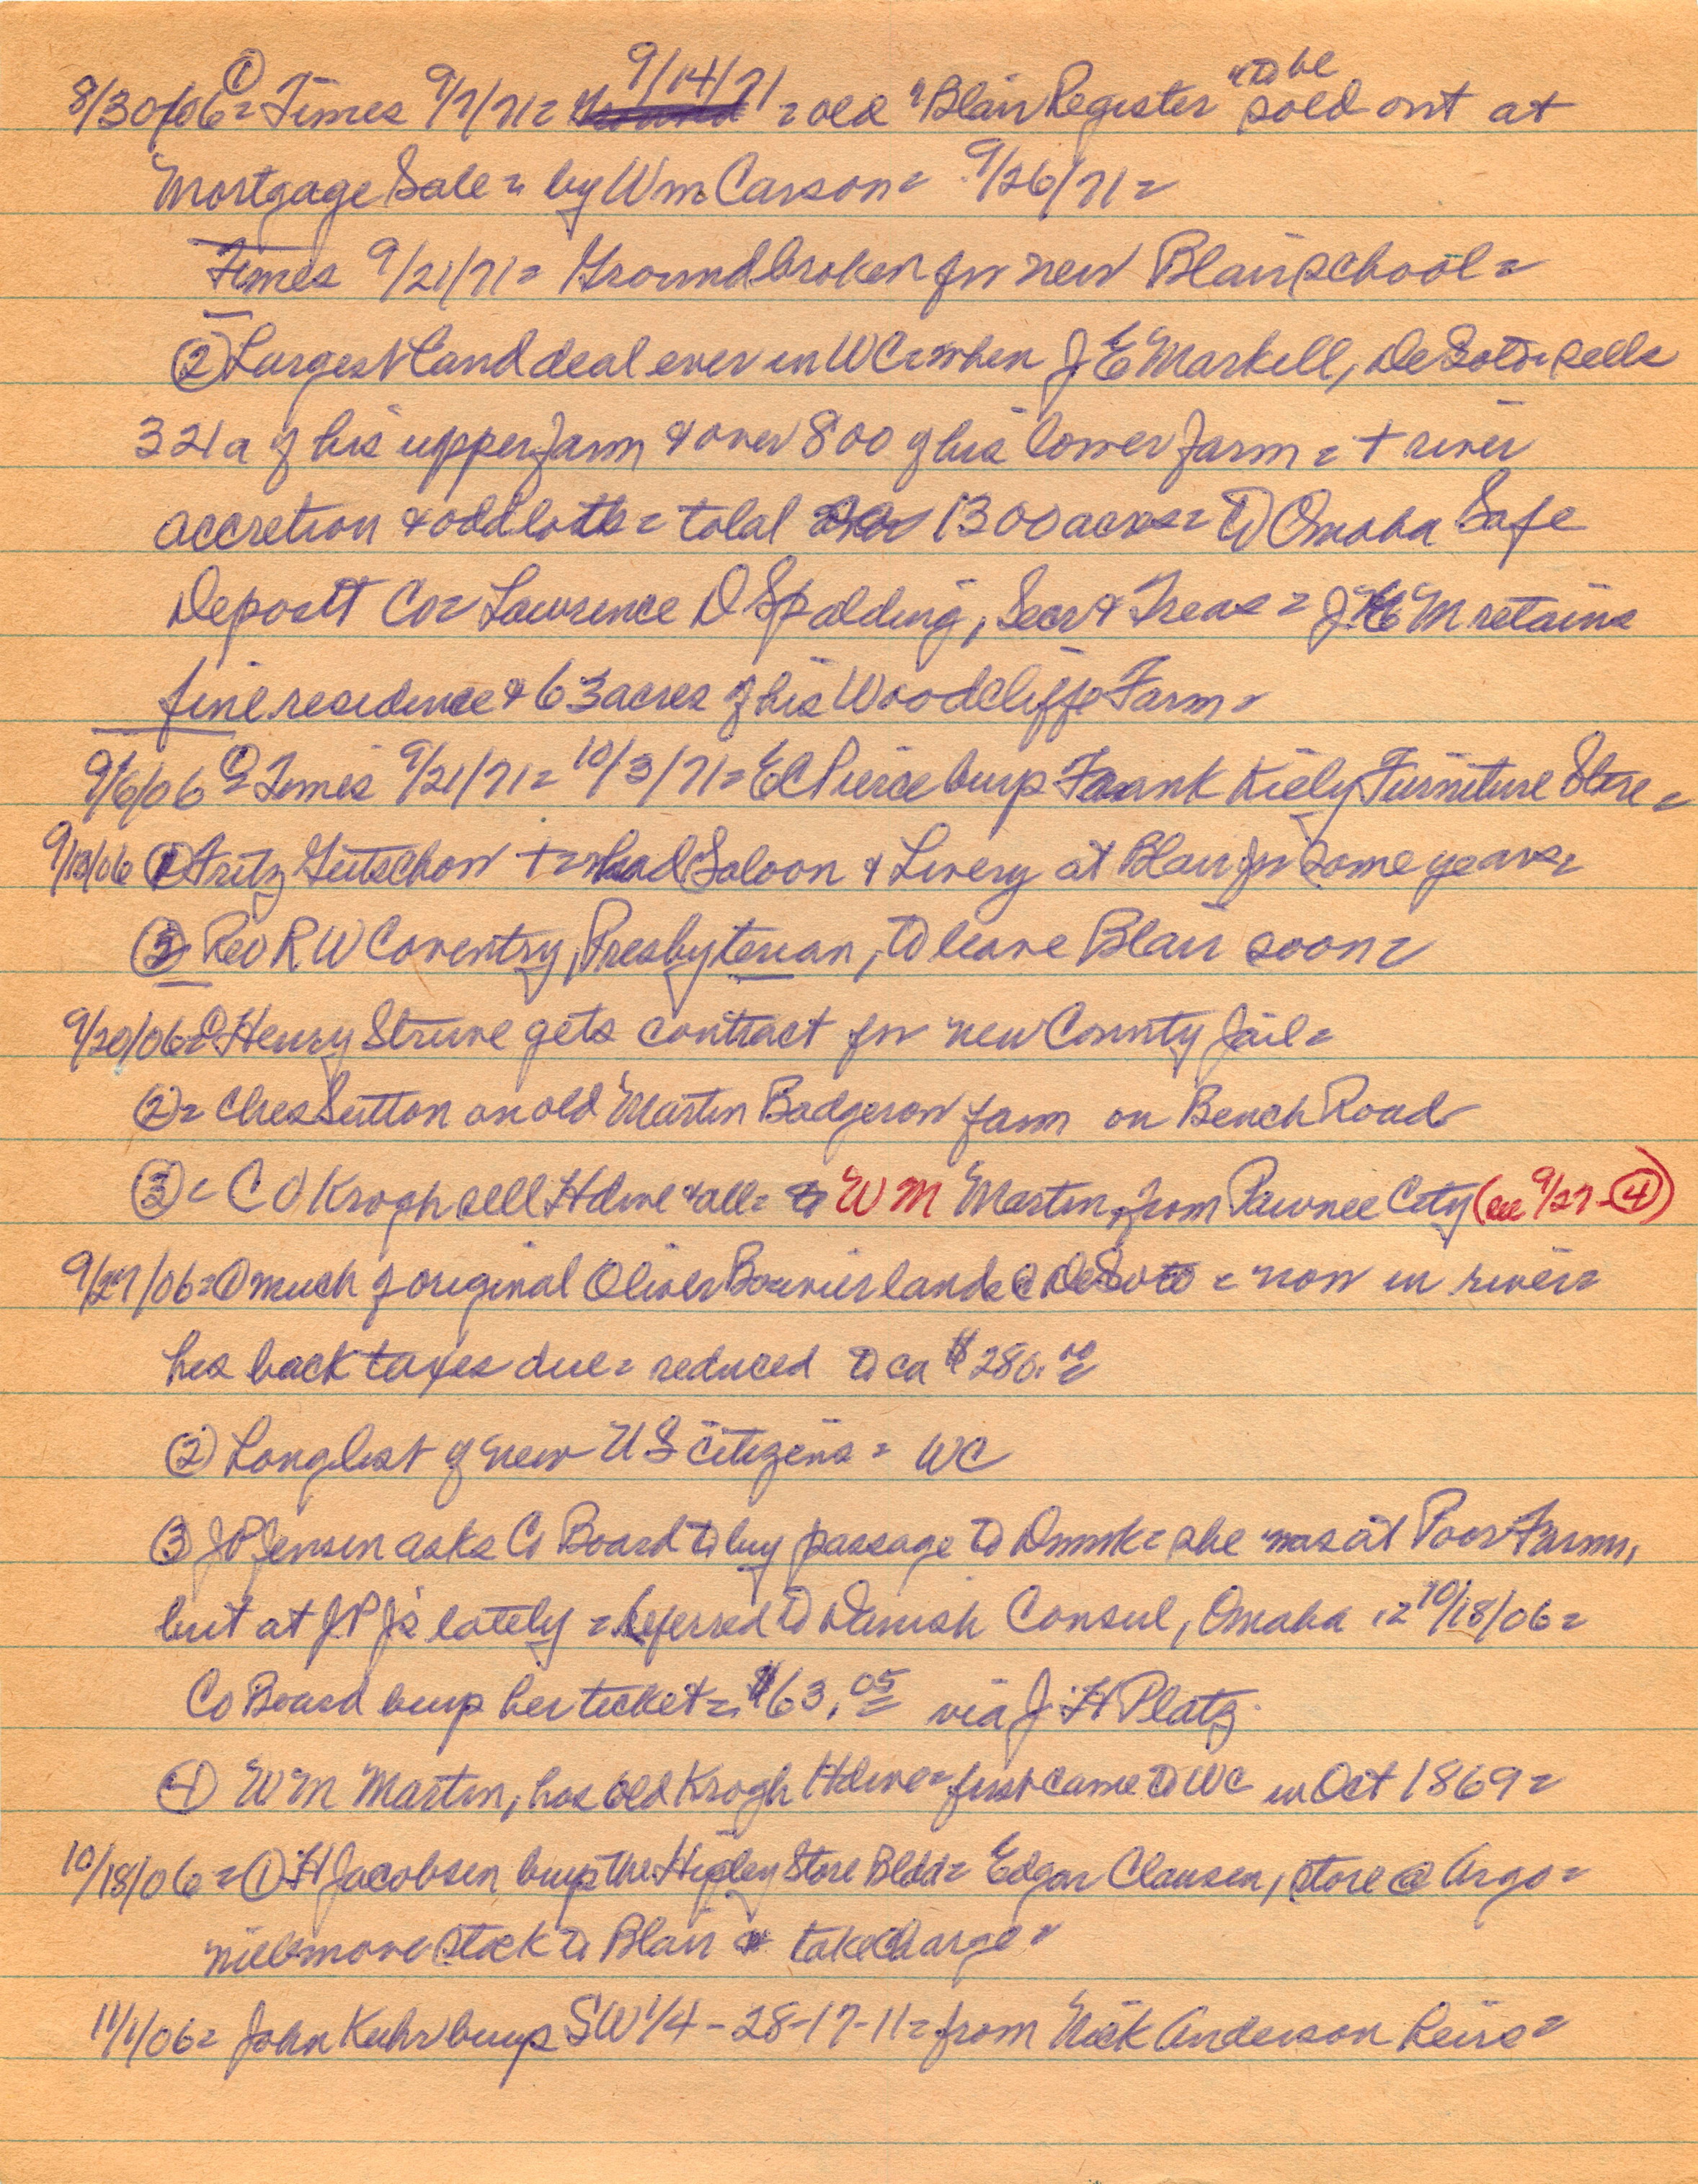 8/30/06 = ① Times 9/7/71 = 9/14/71 = old "Blair Register" to be sold out at
Mortgage Sale = by Wm Carson = 9/26/71 =
Times 9/21/71 = Ground broken for new Blair school =
② Largest land deal ever in WC = when J E Markell, DeSoto = sells
321a of his upper farm & over 800 of his lower farm = + river
accretion & odd lots = total 1300 acres = to Omaha Safe
Deposit Co = Lawrence D Spalding, Secr & Treas = J E M retains
fine residence & 63 acres of his Woodcliffe Farm =
9/6/06 ① = Times 9/21/71 = 10/3/71 = E C Pierce buys Frank Kiely Furniture Store =
9/13/06 ① Fritz Gutschow + = had Saloon & Livery at Blair for some years =
③ Rev R W Coventry, Presbyterian, to leave Blair soon =
9/20/06 = ① Henry Struve gets contract for new County Jail =
② = Ches Sutton on old Martin Badgerow farm on Bench Road
③ = C O Krogh sell Hdwe & all = to W M Martin, from Pawnee City (see 9/27 - ④)
9/27/06 = ① much of original Oliver Bouvier lands @ DeSoto = now in river =
his back taxes due = reduced to ca $280.00
② Long list of new U S citizens = WC
③ J P Jensen asks Co Board to buy passage to Dnmk = she was at Poor Farm,
but at J P J's lately = referred to Danish Consul, Omaha = 10/18/06 =
Co Board buys her ticket = $63.05 via J H Platz
④ W M Martin, has old Krogh Hdwe = first came to WC in Oct 1869 =
10/18/06 = ① H Jacobsen buys the Higley Store Bldd = Edgar Clausen, store @ Argo =
will move stock to Blair & take charge =
11/1/06 = John Kuhr buys SW 1/4 - 28-17-11 = from Nick Anderson heirs =